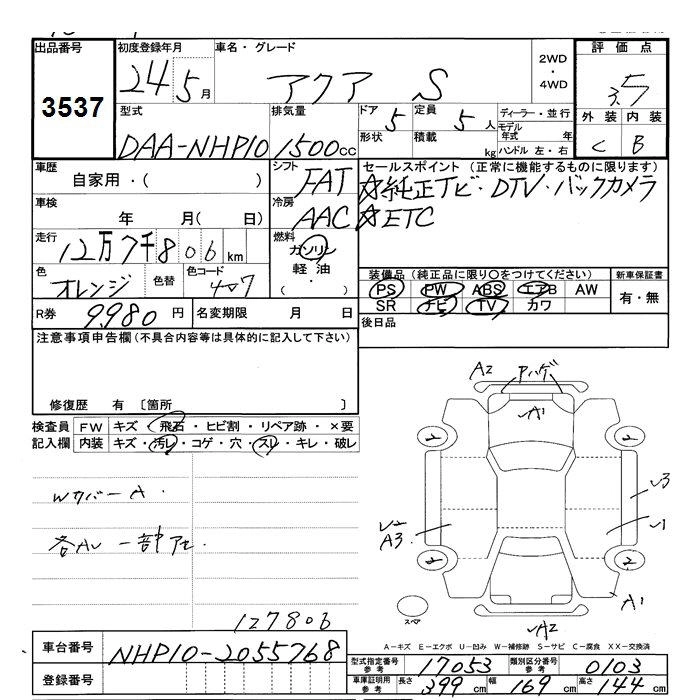 出品番号 初度登録年月 車名・グレード 評価点
3537 24 5月 アクア S 2WD・4WD 3.5
外装 内装
C B
型式 排気量 ドア 5 定員 5人 ディーラー・並行
DAA-NHP10 1500cc 形状 積載 kg モデル年式 年
ハンドル 左・右
車歴 シフト セールスポイント(正常に機能するものに限ります)
自家用・( ) FAT ☆純正Tビ・DTV・バックカメラ
車検 冷房 ☆ETC
年 月( 日) AAC
走行 燃料
12万7千806km ガソリン
色 色替 色コード 軽油
オレンジ 4W7 ( ・ )
装備品(純正品に限り○をつけてください) 新車保証書
PS PW ABS エアB AW 有・無
SR ナビ TV カワ
R券 9,980円 名変期限 月 日
後日品
注意事項申告欄(不具合内容等は具体的に記入して下さい)
修復歴 有 〔箇所 〕
検査員 FW キズ・飛石・ヒビ割・リペア跡・×要
記入欄 内装 キズ・汚レ・コゲ・穴・スレ・キレ・破レ
A2 Pハゲ
A1
WカバーA.
各AU一部アセ.
U3
U1
U2
A3
A1
スペア
A2
127806
A-キズ E-エクボ U-凹み W-補修跡 S-サビ C-腐食 XX-交換済
車台番号 NHP10-2055768
登録番号
型式指定番号参考 17053 類別区分番号参考 0103
車庫証明用参考 長さ 399cm 幅 169cm 高さ 144cm